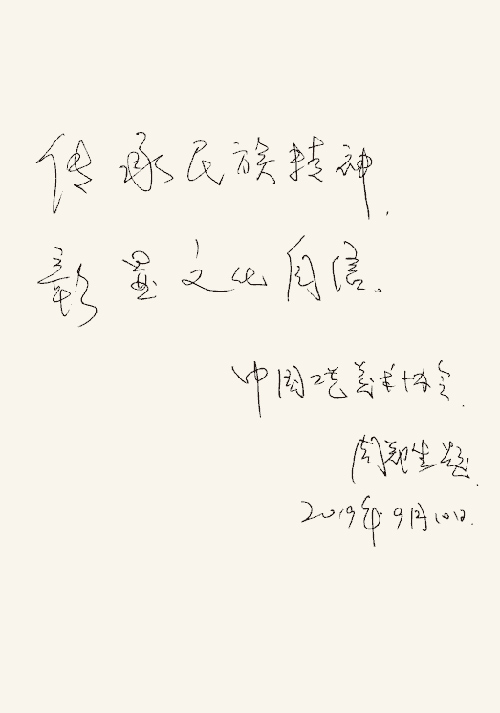 传承民族精神.
彰显文化自信.
中国工艺美术协会.
周郑生题.
2019年9月10日.